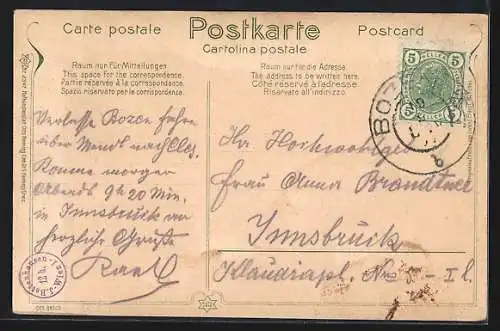 Carte postale
Postkarte
Postcard
Cartolina postale
Raum nur für Mitteilungen
This space for the correspondence.
Partie réservée à la correspondance.
Spazio riservato per le corrispondenze.
Raum nur für die Adresse
The address to be written here
Côté réservé à l'adresse
Riservato all'indirizzo.
5 HELLER 5
BOZEN
Verlasse Bozen fahre
über Mendl nach Cles.
Komme morgen
Abends 9h 20 Min.
in Innsbruck an
herzliche Grüße
Karl
Ihr Hochwohlgeb
Frau Anna Brandtner
Innsbrück
Klaudiapl. No